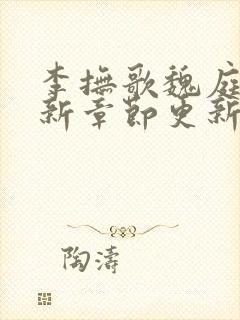 李撫歌魏庭
新章節更新
陶濤